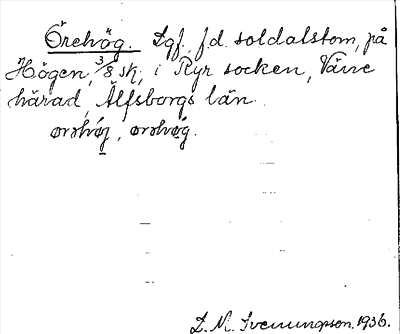 Örehög. Lgf. f.d. soldatstom, på
Högen, 3/8 sk, i Ryr socken, Väne
härad, Älfsborgs län.
L. M. Svenungsson. 1936.